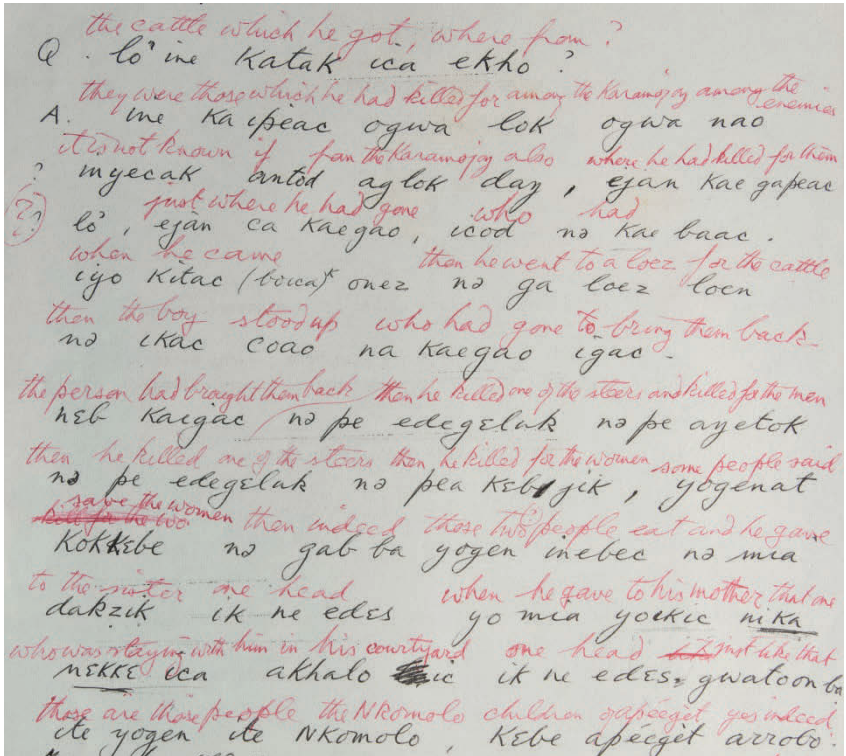 the cattle which he got, where from?
Q. lò ine katak ica ekho?
they were those which he had killed for among the Karamojoy among the enemies
A. ine ka ipeac ogwa lok ogwa nao
it is not known if from the Karamojoy also where he had killed for them
? myecak antod aglok day, ejan kae gapeac
just where he had gone who had
?? lò, ejàn ca kaegao, icod nə kae baac.
when he came then he went to a loez for the cattle
iyo kitac (boica)* onez nə ga loez locn
then the boy stood up who had gone to bring them back
nə ikac coao na kaegao igac.
the person had brought them back then he killed one of the steers and killed for the men
nɛb kaigac nə pe edegɛluk nə pe ayetok
then he killed one of the steers then he killed for the women some people said
nə pe edegɛluk nə pea kɛb jik, yogenat
save the women then indeed those two people eat and he gave
kokkebe nə gab ba yogen inebec nə mia
to the sister one head when he gave to his mother that one
dakzik ik ne edɛs yo mia yoɛkic nika
who was staying with him in his courtyard one head just like that
nɛkkɛ ica akhalo ic ik ne edɛs, gwatoon ba
those are those people the NKomolo children yes indeed
ite yogen ite NKomolo, kɛbe apecget arrobo.